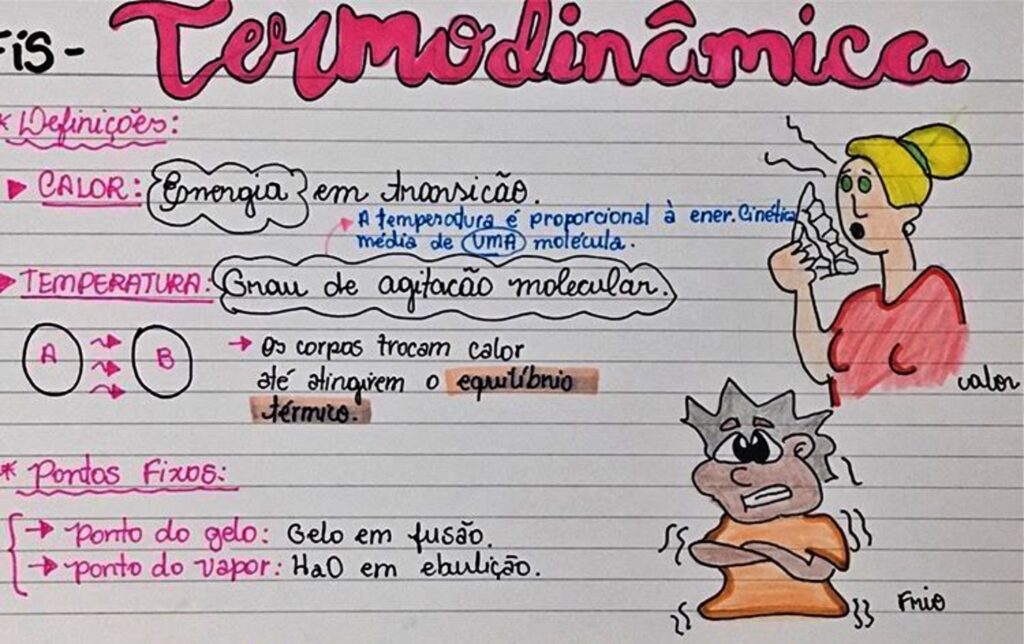 FiS - Termodinâmica
* Definições:
CALOR: Energia em transicão.
A temperatura é proporcional à ener. Cinética
média de UMA molécula.
TEMPERATURA: Grau de agitacão molecular.
A B
Os corpos trocam calor
até atingirem o equilíbrio
térmico.
calor
* Pontos Fixos:
Ponto do gelo: Gelo em fusão.
ponto do vapor: H2O em ebulição.
Frio